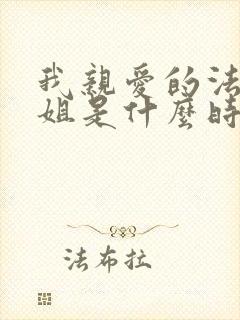 我親愛的法
姐是什麼時
法布拉